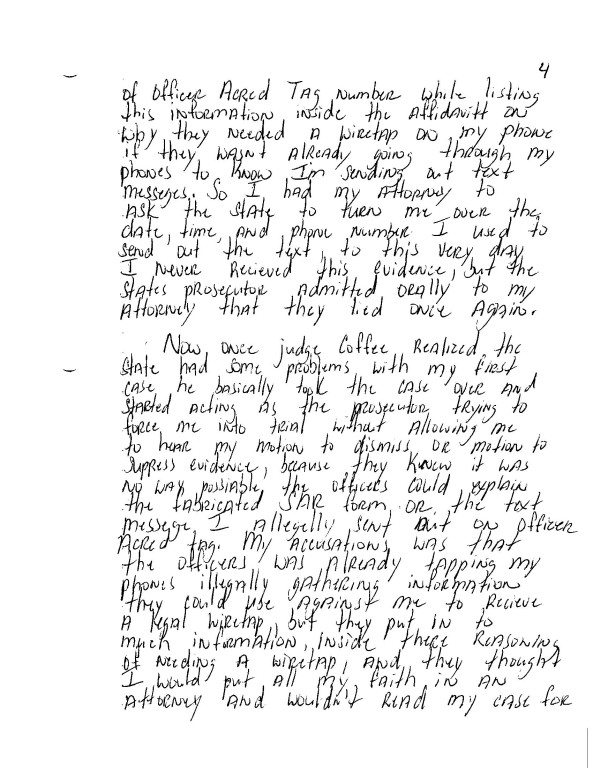 4
of officer Acred Tag number while listing
this information inside the affidavitt on
why they needed a wiretap on my phone
if they wasn't already going through my
phones to know Im sending out text
messeges. So I had my Attorney to
ASK the state to turn me over the
date, time, and phone number I used to
send out the text, to this very day
I never recieved this evidence, but the
states prosecutor admitted orally to my
Attorney that they lied once again.
Now once judge Coffee realized the
state had some problems with my first
case he basically took the case over and
started acting as the prosecutor trying to
force me into trial without allowing me
to hear my motion to dismiss or motion to
suppress evidence, because they knew it was
no way possiable the officers could explain
the fabricated SAR form or the text
message I allegelly sent out on officer
Acred tag. My accusations was that
the officers was already tapping my
phones illegally gathering information
they could use against me to recieve
a legal wiretap, but they put in to
much information, inside there reasoning
of needing a wiretap, and they thought
I would put all my faith in an
attorney and wouldn't read my case for